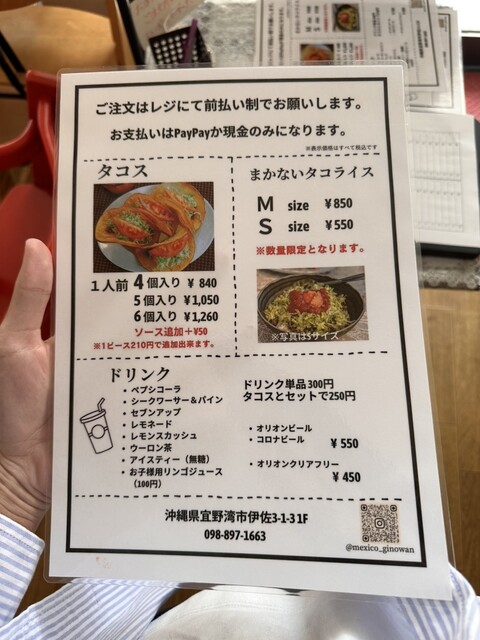 ご注文はレジにて前払い制でお願いします。
お支払いはPayPayか現金のみになります。
※表示価格はすべて税込です
タコス
1人前 4個入り ¥ 840
5個入り ¥1,050
6個入り ¥1,260
ソース追加+¥50
※1ピース210円で追加出来ます。
まかないタコライス
M size ¥850
S size ¥550
※数量限定となります。
※写真はSサイズ
ドリンク
・ペプシコーラ
・シークワーサー&パイン
・セブンアップ
・レモネード
・レモンスカッシュ
・ウーロン茶
・アイスティー（無糖）
・お子様用リンゴジュース
（100円）
ドリンク単品300円
タコスとセットで250円
・オリオンビール
・コロナビール
¥ 550
・オリオンクリアフリー
¥ 450
沖縄県宜野湾市伊佐3-1-3 1F
098-897-1663
@mexico_ginowan